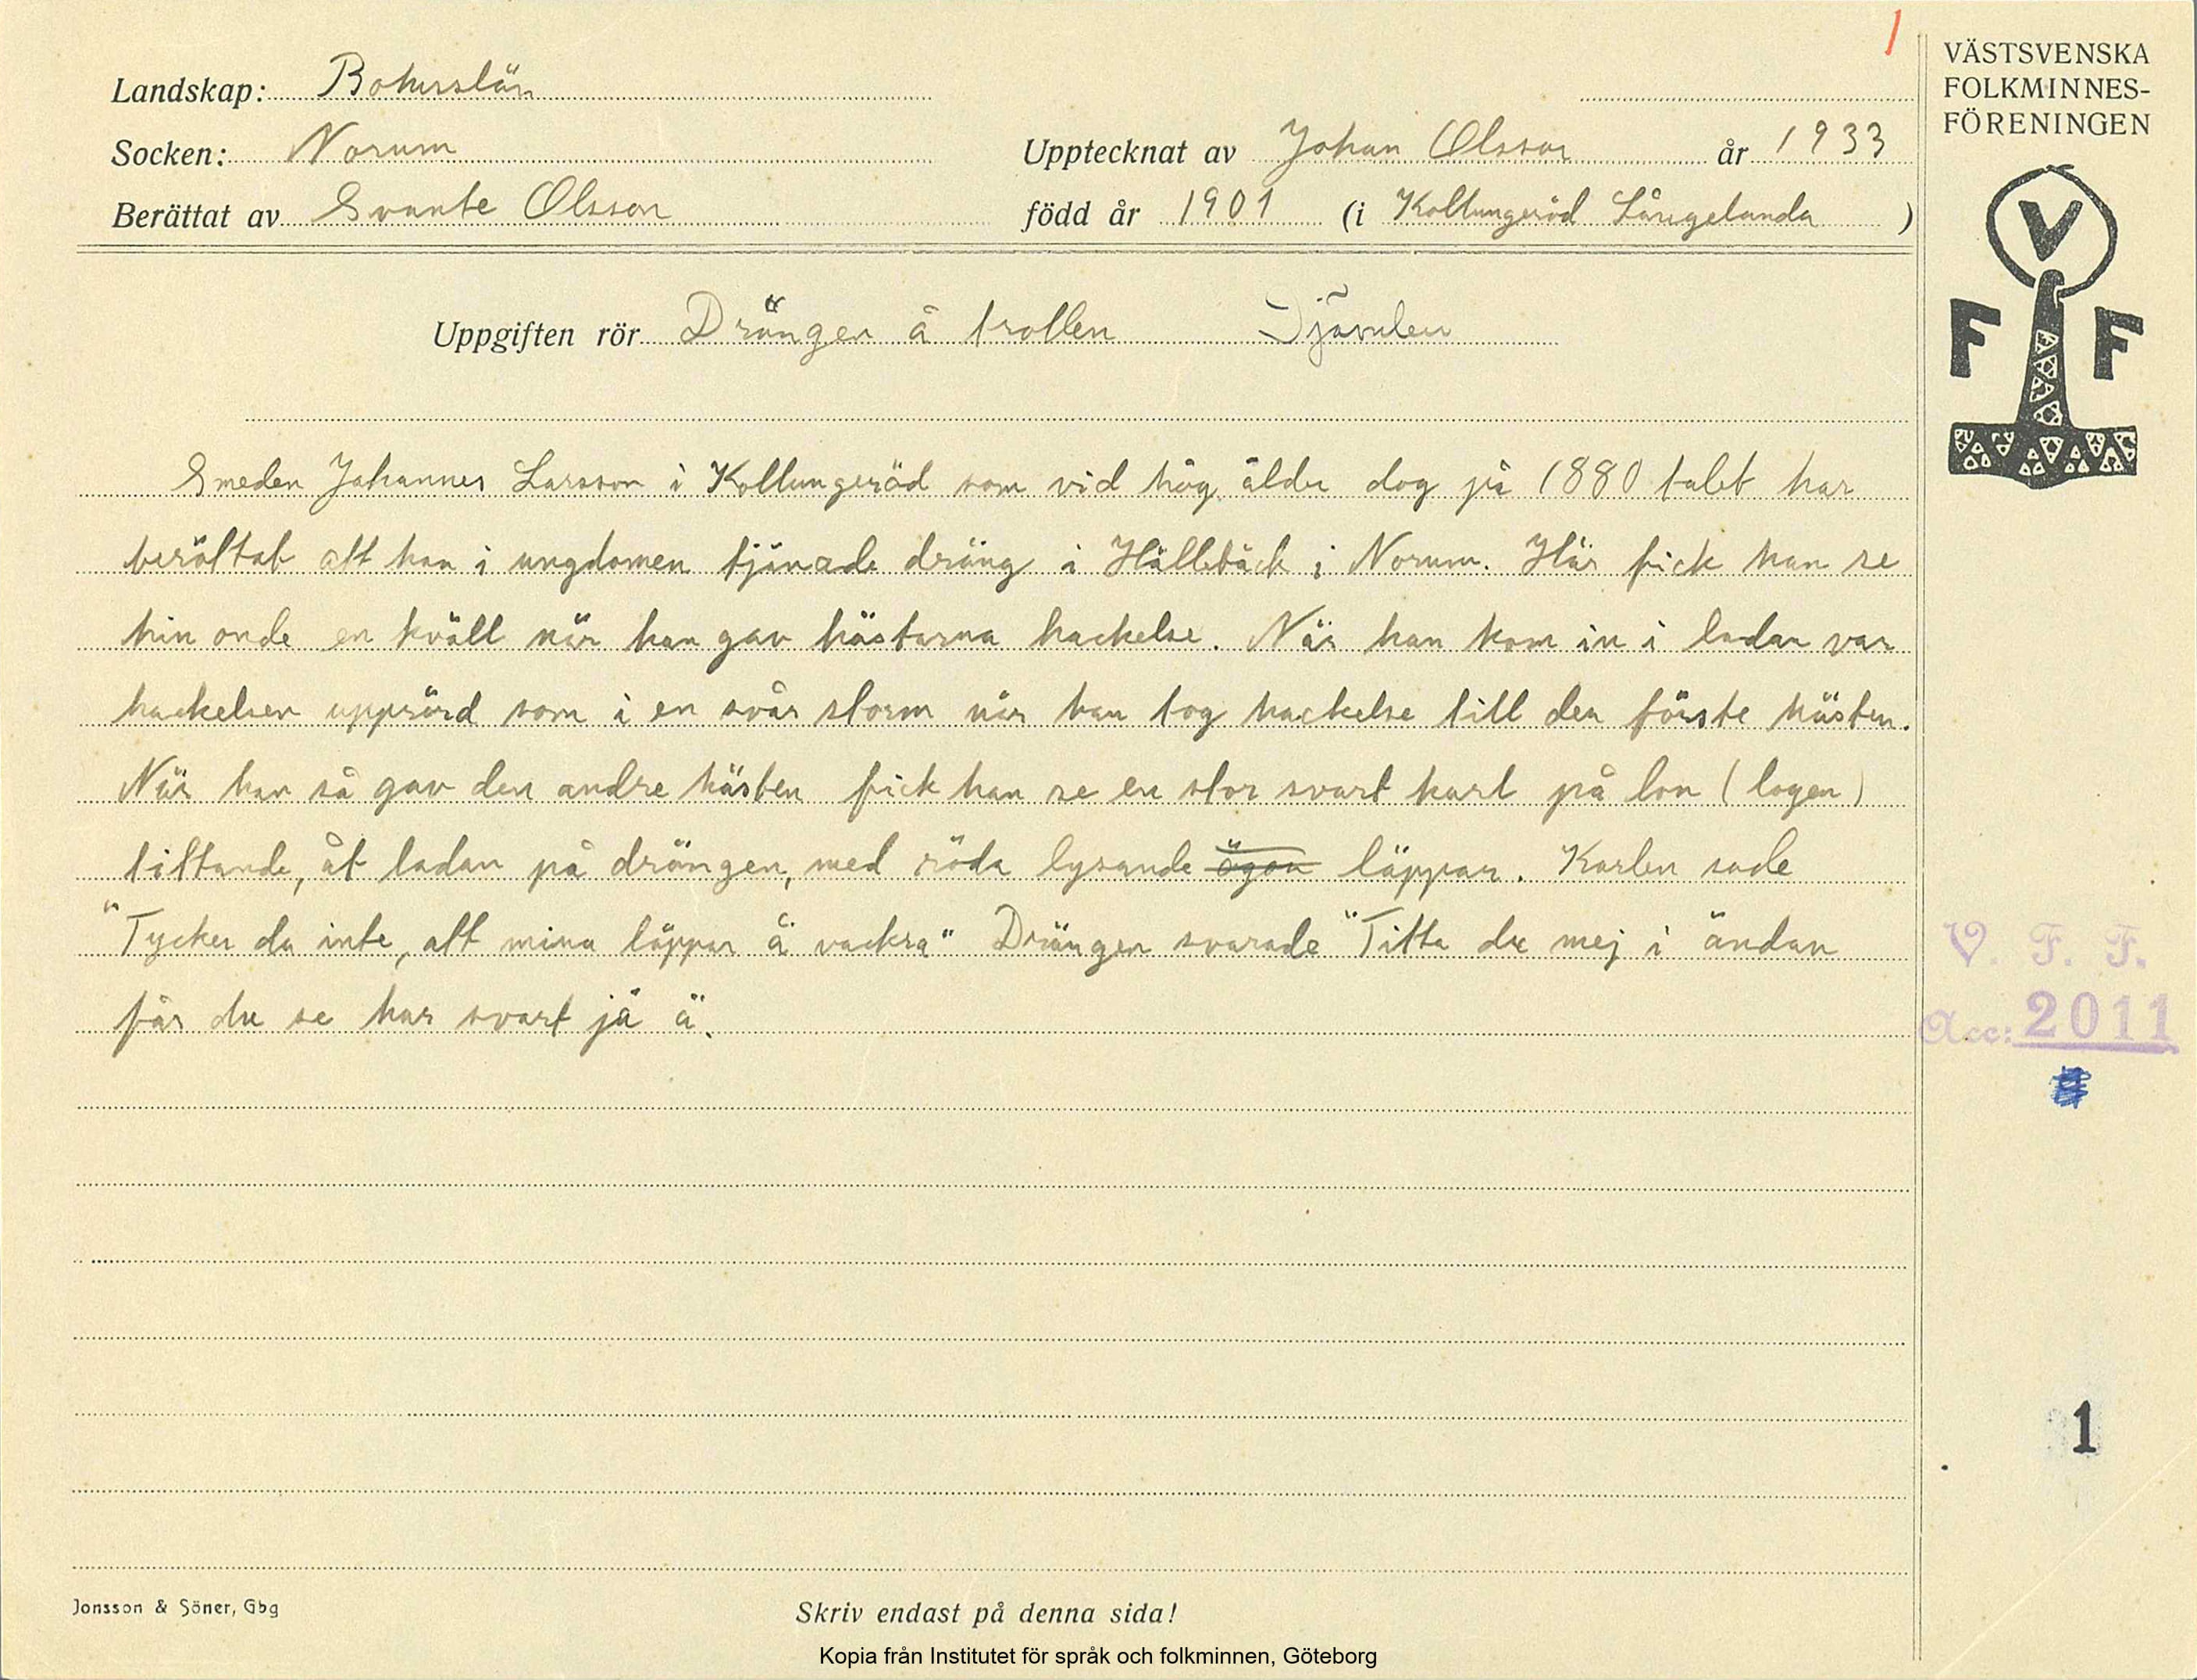 1
VÄSTSVENSKA
FOLKMINNES-
FÖRENINGEN
V
F F
Landskap: Bohuslän
Socken: Norum
Upptecknat av Johan Olsson år 1933
Berättat av Svante Olsson
född år 1901 (i Kollungeröd Långelanda )
Uppgiften rör Drängen å trollen Djävulen
Smeden Johannes Larsson i Kollungeröd som vid hög ålder dog på 1880 talet har
berättat att han i ungdomen tjänade dräng i Hällebäck i Norum. Här fick han se
hin onde en kväll när han gav hästarna hackelse. När han kom in i ladan var
hackelsen upprörd som i en svår storm när han tog hackelse till den förste hästen.
När han så gav den andre hästen fick han se en stor svart karl på lon (logen)
tittande, åt ladan på drängen, med röda lysande ögon läppar. Karlen sade
"Tycker du inte, att mina läppar ä vackra" Drängen svarade "Titta du mej i ändan
får du se har svart jä ä.
V. F. F.
Acc: 2011
1
Jonsson & Söner, Gbg
Skriv endast på denna sida!
Kopia från Institutet för språk och folkminnen, Göteborg